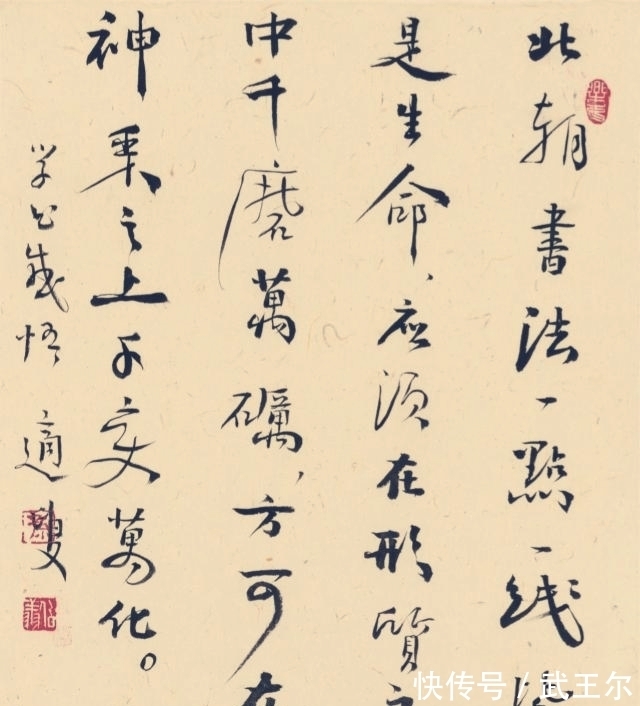 北朝書法一點一线
是生命、应须在形質之
中千磨萬礪、方可在
神采之上千变萬化。
学书感悟 適叟
快传号 / 武王尔